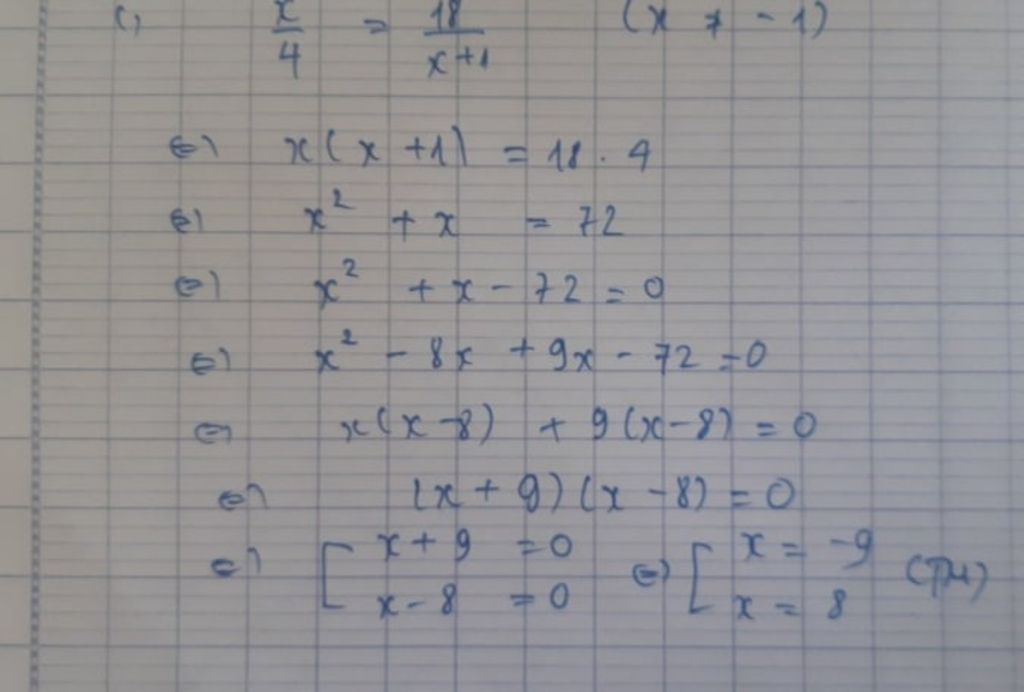 c, x/4 = 18/x+1 (x ≠ -1)
⇔ x(x+1) = 18.4
⇔ x² + x = 72
⇔ x² + x - 72 = 0
⇔ x² - 8x + 9x - 72 = 0
⇔ x(x-8) + 9(x-8) = 0
⇔ (x+9)(x-8) = 0
⇔ [ x+9 = 0 ⇔ [ x = -9 (TM)
x-8 = 0 x = 8